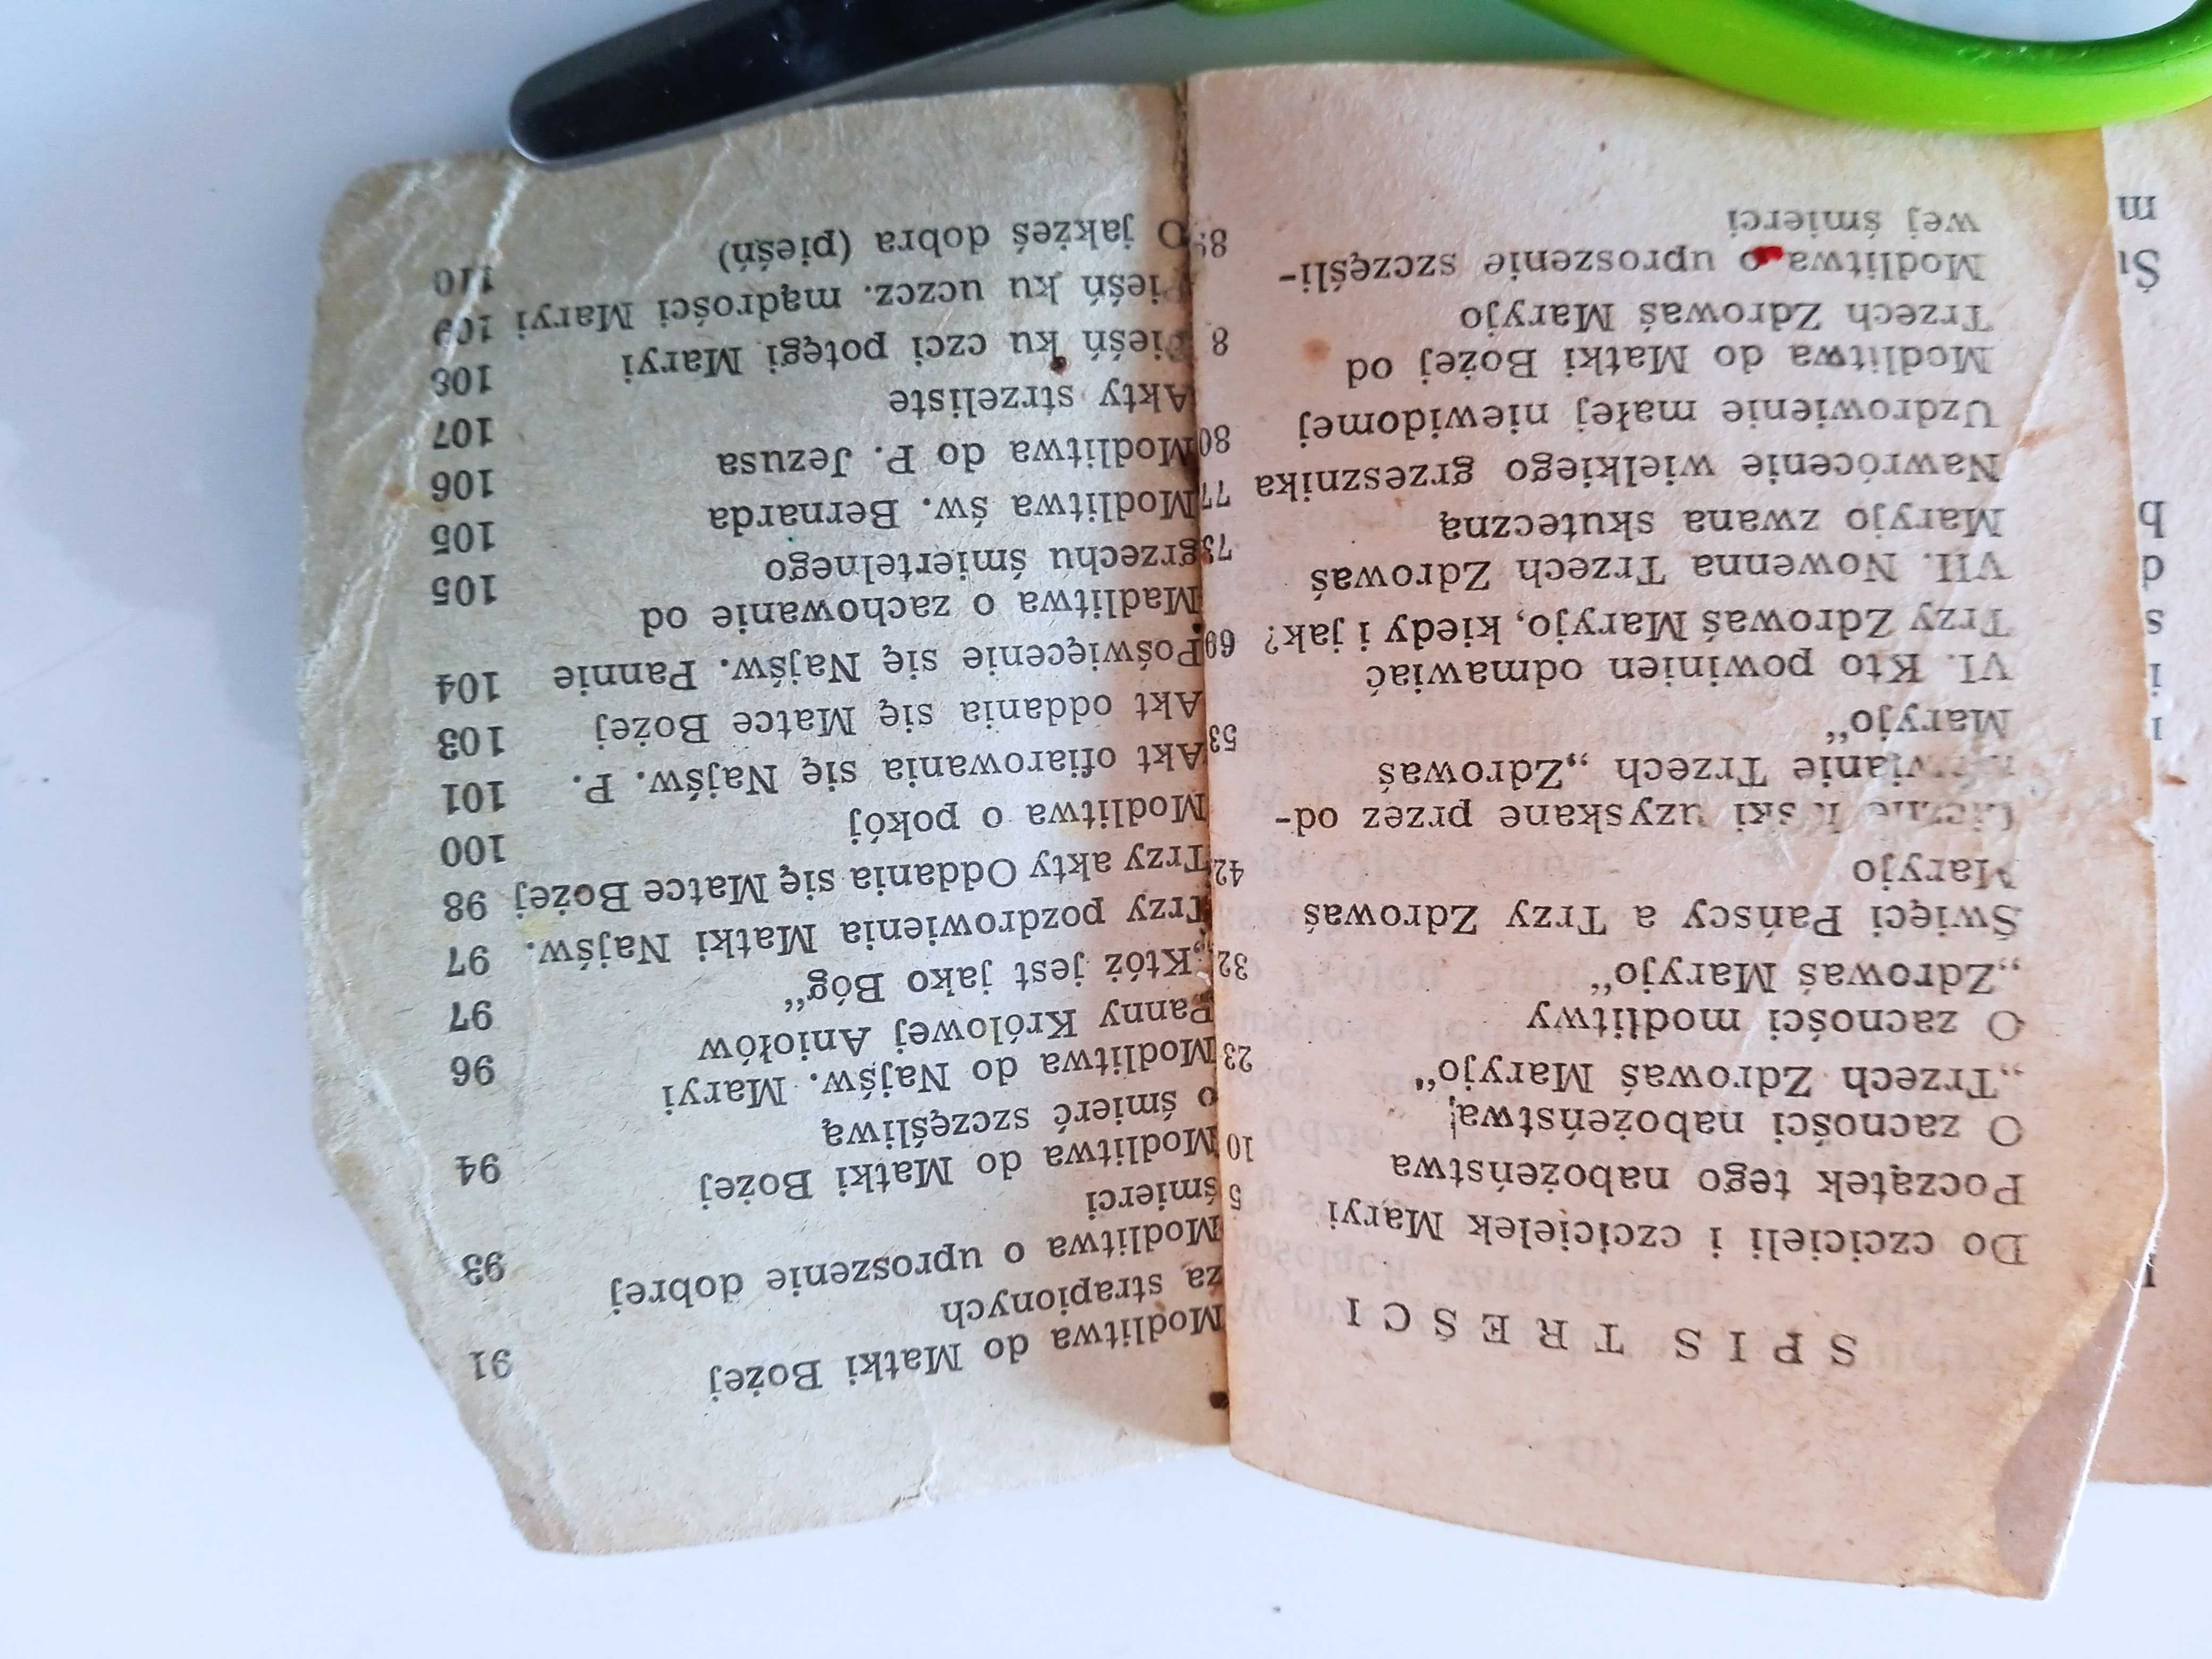 SPIS TREŚCI
Do czcicieli i czcicielek Maryi 5
Początek tego nabożeństwa 10
O zacności nabożeństwa
„Trzech Zdrowaś Maryjo“ 23
O zacności modlitwy
„Zdrowaś Maryjo“ 32
Święci Pańscy a Trzy Zdrowaś
Maryjo 42
uzyskane przez od-
Trzech „Zdrowaś
Maryjo“ 53
VI. Kto powinien odmawiać
Trzy Zdrowaś Maryjo, kiedy i jak? 69
VII. Nowenna Trzech Zdrowaś
Maryjo zwana skuteczną 73
Nawrócenie wielkiego grzesznika 77
Uzdrowienie małej niewidomej 80
Modlitwa do Matki Bożej od
Trzech Zdrowaś Maryjo 8
Modlitwa o uproszenie szczęśli-
wej śmierci
Modlitwa do Matki Bożej
za strapionych 91
Modlitwa o uproszenie dobrej
śmierci 93
Modlitwa do Matki Bożej
o śmierć szczęśliwą 94
Modlitwa do Najśw. Maryi
Panny Królowej Aniołów 96
„Któż jest jako Bóg“ 97
Trzy pozdrowienia Matki Najśw. 97
Trzy akty Oddania się Matce Bożej 98
Modlitwa o pokój 100
Akt ofiarowania się Najśw. P. 101
Akt oddania się Matce Bożej 103
Poświęcenie się Najśw. Pannie 104
Madlitwa o zachowanie od
grzechu śmiertelnego 105
Modlitwa św. Bernarda 105
Modlitwa do P. Jezusa 106
Akty strzeliste 107
Pieśń ku czci potęgi Maryi 108
Pieśń ku uczcz. mądrości Maryi 109
O jakżeś dobra (pieśń) 110